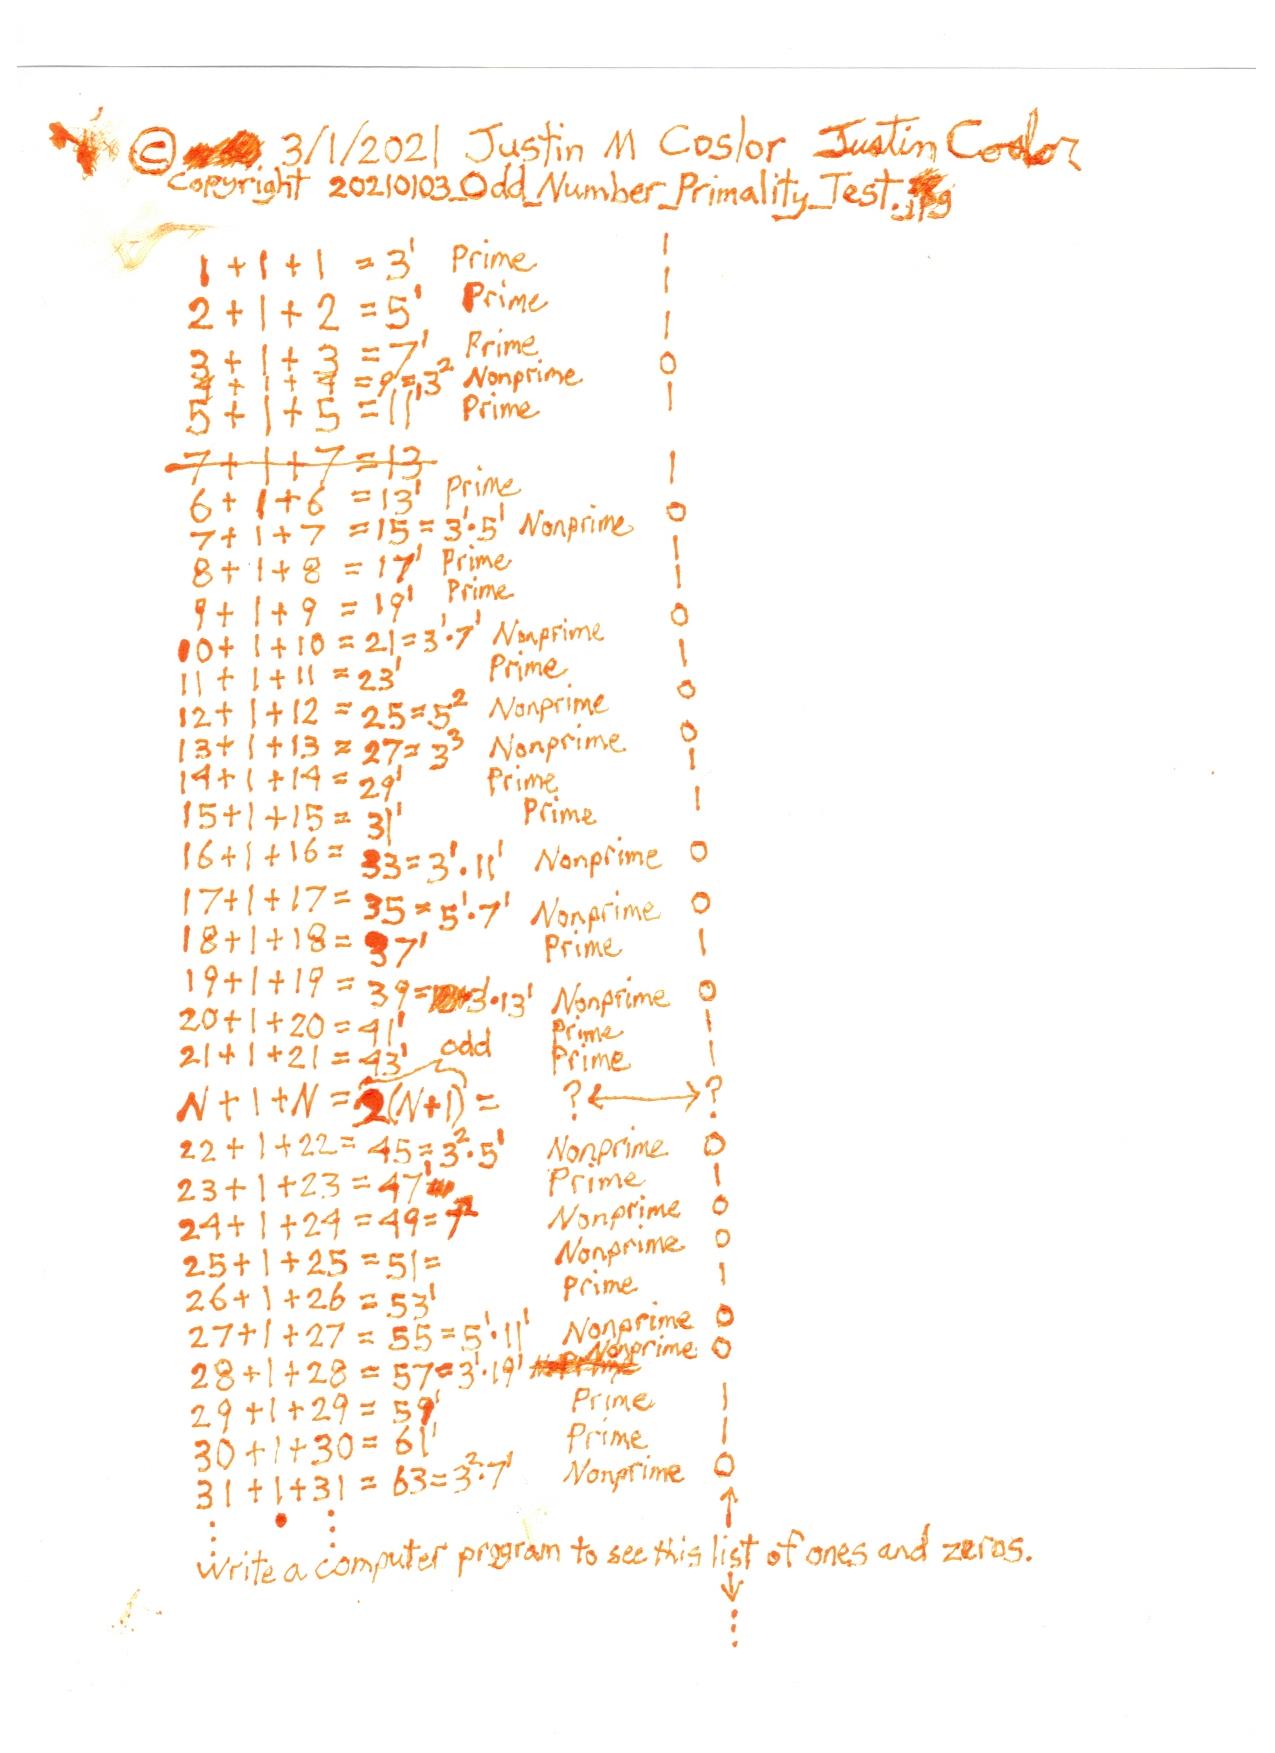 © 3/1/2021 Justin M Coslor Justin Coslor
Copyright 20210103_Odd_Number_Primality_Test.jpg
1
1+1+1 = 3' Prime 1
2+1+2 = 5' Prime 1
3+1+3 = 7' Prime 0
4+1+4 = 9 = 3² Nonprime
5+1+5 = 11' Prime 1
7+1+7 = 13 1
6+1+6 = 13' Prime
7+1+7 = 15 = 3'·5' Nonprime 0
8+1+8 = 17' Prime 1
9+1+9 = 19' Prime 1
10+1+10 = 21 = 3'·7' Nonprime 0
11+1+11 = 23' Prime 1
12+1+12 = 25 = 5² Nonprime 0
13+1+13 = 27 = 3³ Nonprime 0
14+1+14 = 29' Prime 1
15+1+15 = 31' Prime 1
16+1+16 = 33 = 3'·11' Nonprime 0
17+1+17 = 35 = 5'·7' Nonprime 0
18+1+18 = 37' Prime 1
19+1+19 = 39 = 3'·13' Nonprime 0
20+1+20 = 41' Prime 1
21+1+21 = 43' Prime 1
odd
N+1+N = 2(N+1) = ? ←→ ?
22+1+22 = 45 = 3²·5' Nonprime 0
23+1+23 = 47' Prime 1
24+1+24 = 49 = 7² Nonprime 0
25+1+25 = 51 = Nonprime 0
26+1+26 = 53' Prime 1
27+1+27 = 55 = 5'·11' Nonprime 0
28+1+28 = 57 = 3'·19' Nonprime 0
29+1+29 = 59' Prime 1
30+1+30 = 61' Prime 1
31+1+31 = 63 = 3²·7' Nonprime 0
Write a computer program to see this list of ones and zeros.